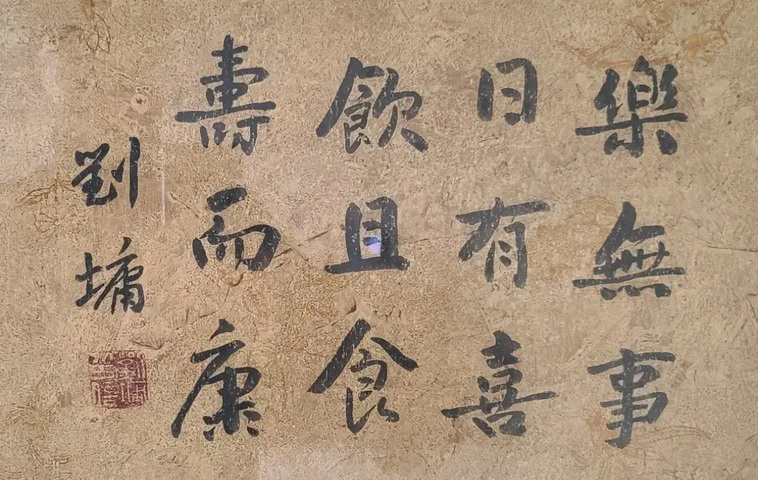 樂無事
日有喜
飲且食
壽而康
劉墉